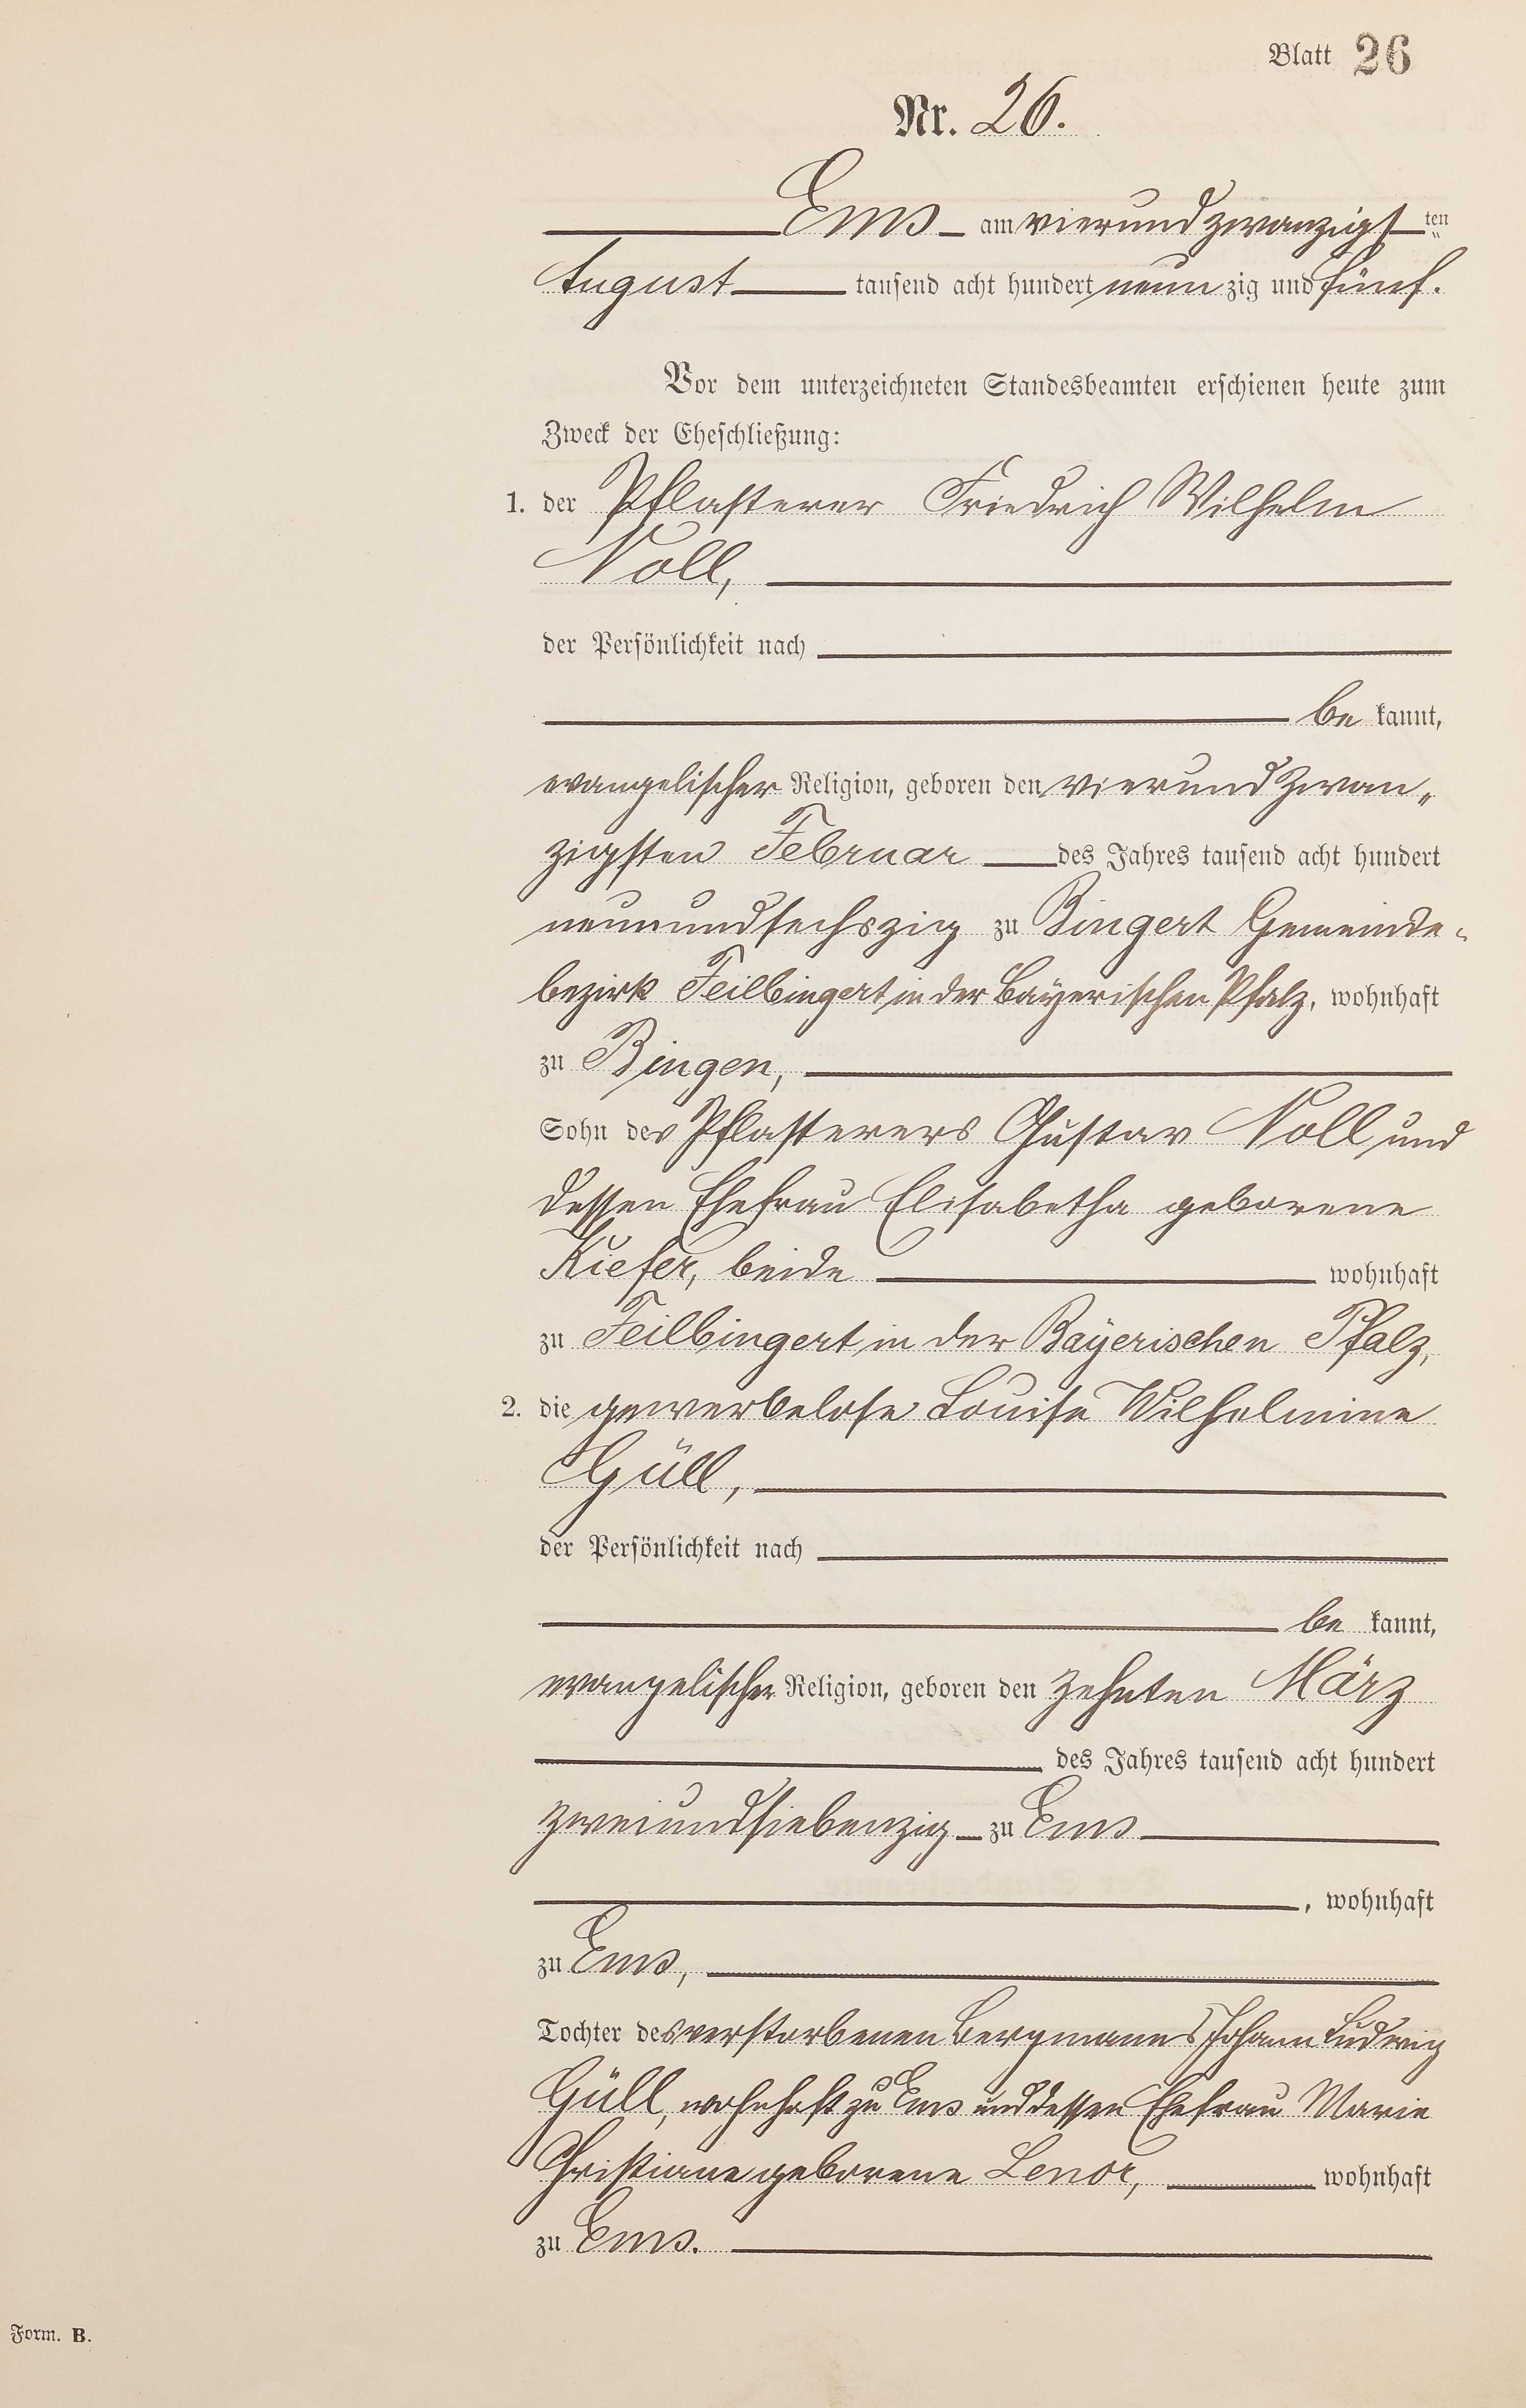 Blatt 26
Nr. 26.
Ems am vierundzwanzigsten
August tausend acht hundert neunzig und fünf.
Vor dem unterzeichneten Standesbeamten erschienen heute zum
Zweck der Eheschließung:
1. der Pflasterer Friedrich Wilhelm
Noll,
der Persönlichkeit nach
bekannt,
evangelischer Religion, geboren den vierundzwan„
zigsten Februar des Jahres tausend acht hundert
neunundsechszig zu Bingert Gemeinde-
bezirk Feilbingert in der Bayerischen Pfalz, wohnhaft
zu Bingen,
Sohn des Pflasterers Gustav Noll und
dessen Ehefrau Elisabetha geborene
Kiefer, beide wohnhaft
zu Feilbingert in der Bayerischen Pfalz,
2. die gewerbelose Louise Wilhelmine
Güll,
der Persönlichkeit nach
bekannt,
evangelischer Religion, geboren den zehnten März
des Jahres tausend acht hundert
zweiundsiebenzig zu Ems
, wohnhaft
zu Ems,
Tochter des verstorbenen Bergmannes Johann Ludwig
Güll, wohnhaft zu Ems und dessen Ehefrau Marie
Christiane geborene Lenor, wohnhaft
zu Ems.
Form. B.